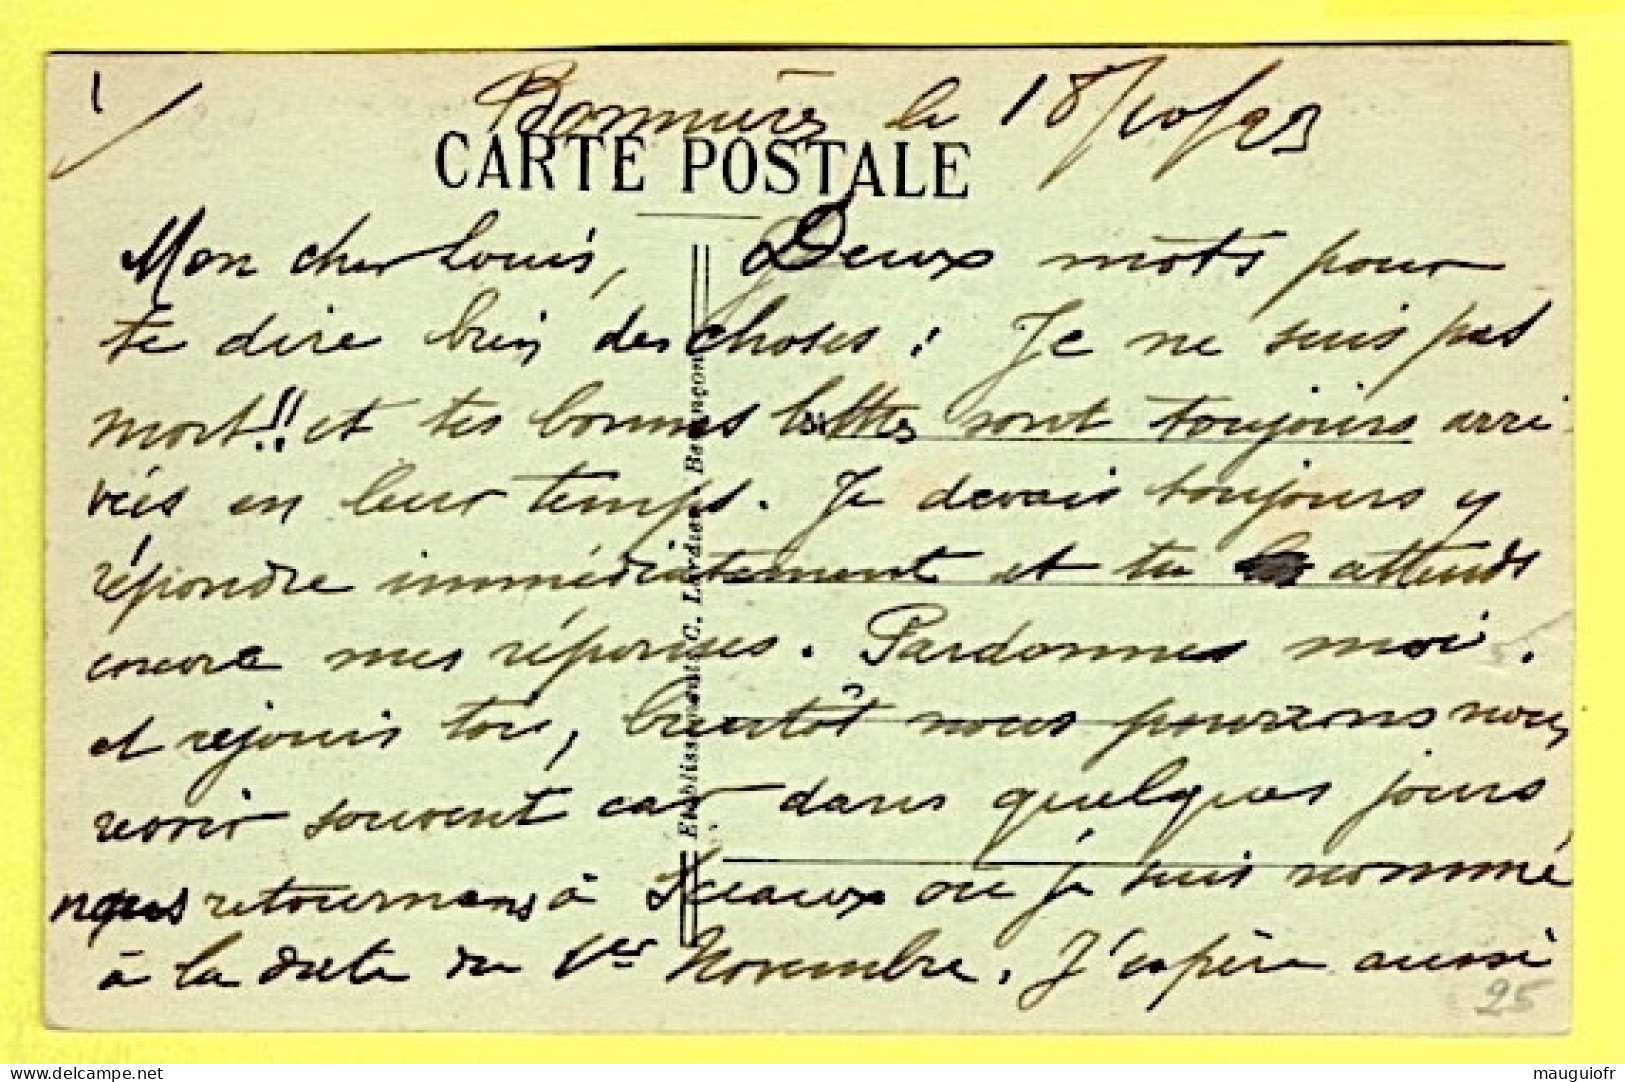 1
Bonnières le 18/10/23
CARTE POSTALE
Mon cher Louis, Deux mots pour
te dire bien des choses : Je ne suis pas
mort!! et tes bonnes lettres sont toujours arri-
vées en leur temps. Je devais toujours y
répondre immédiatement et tu attends
encore mes réponses. Pardonnes moi.
et rejouis toi, bientôt nous pourrons nous
revoir souvent car dans quelques jours
nous retournons à Sceaux où je suis nommé
à la date du 1er Novembre. J'espère aussi
Etablissements C. Lardier Besançon
95
delcampe.net
mauguiofr